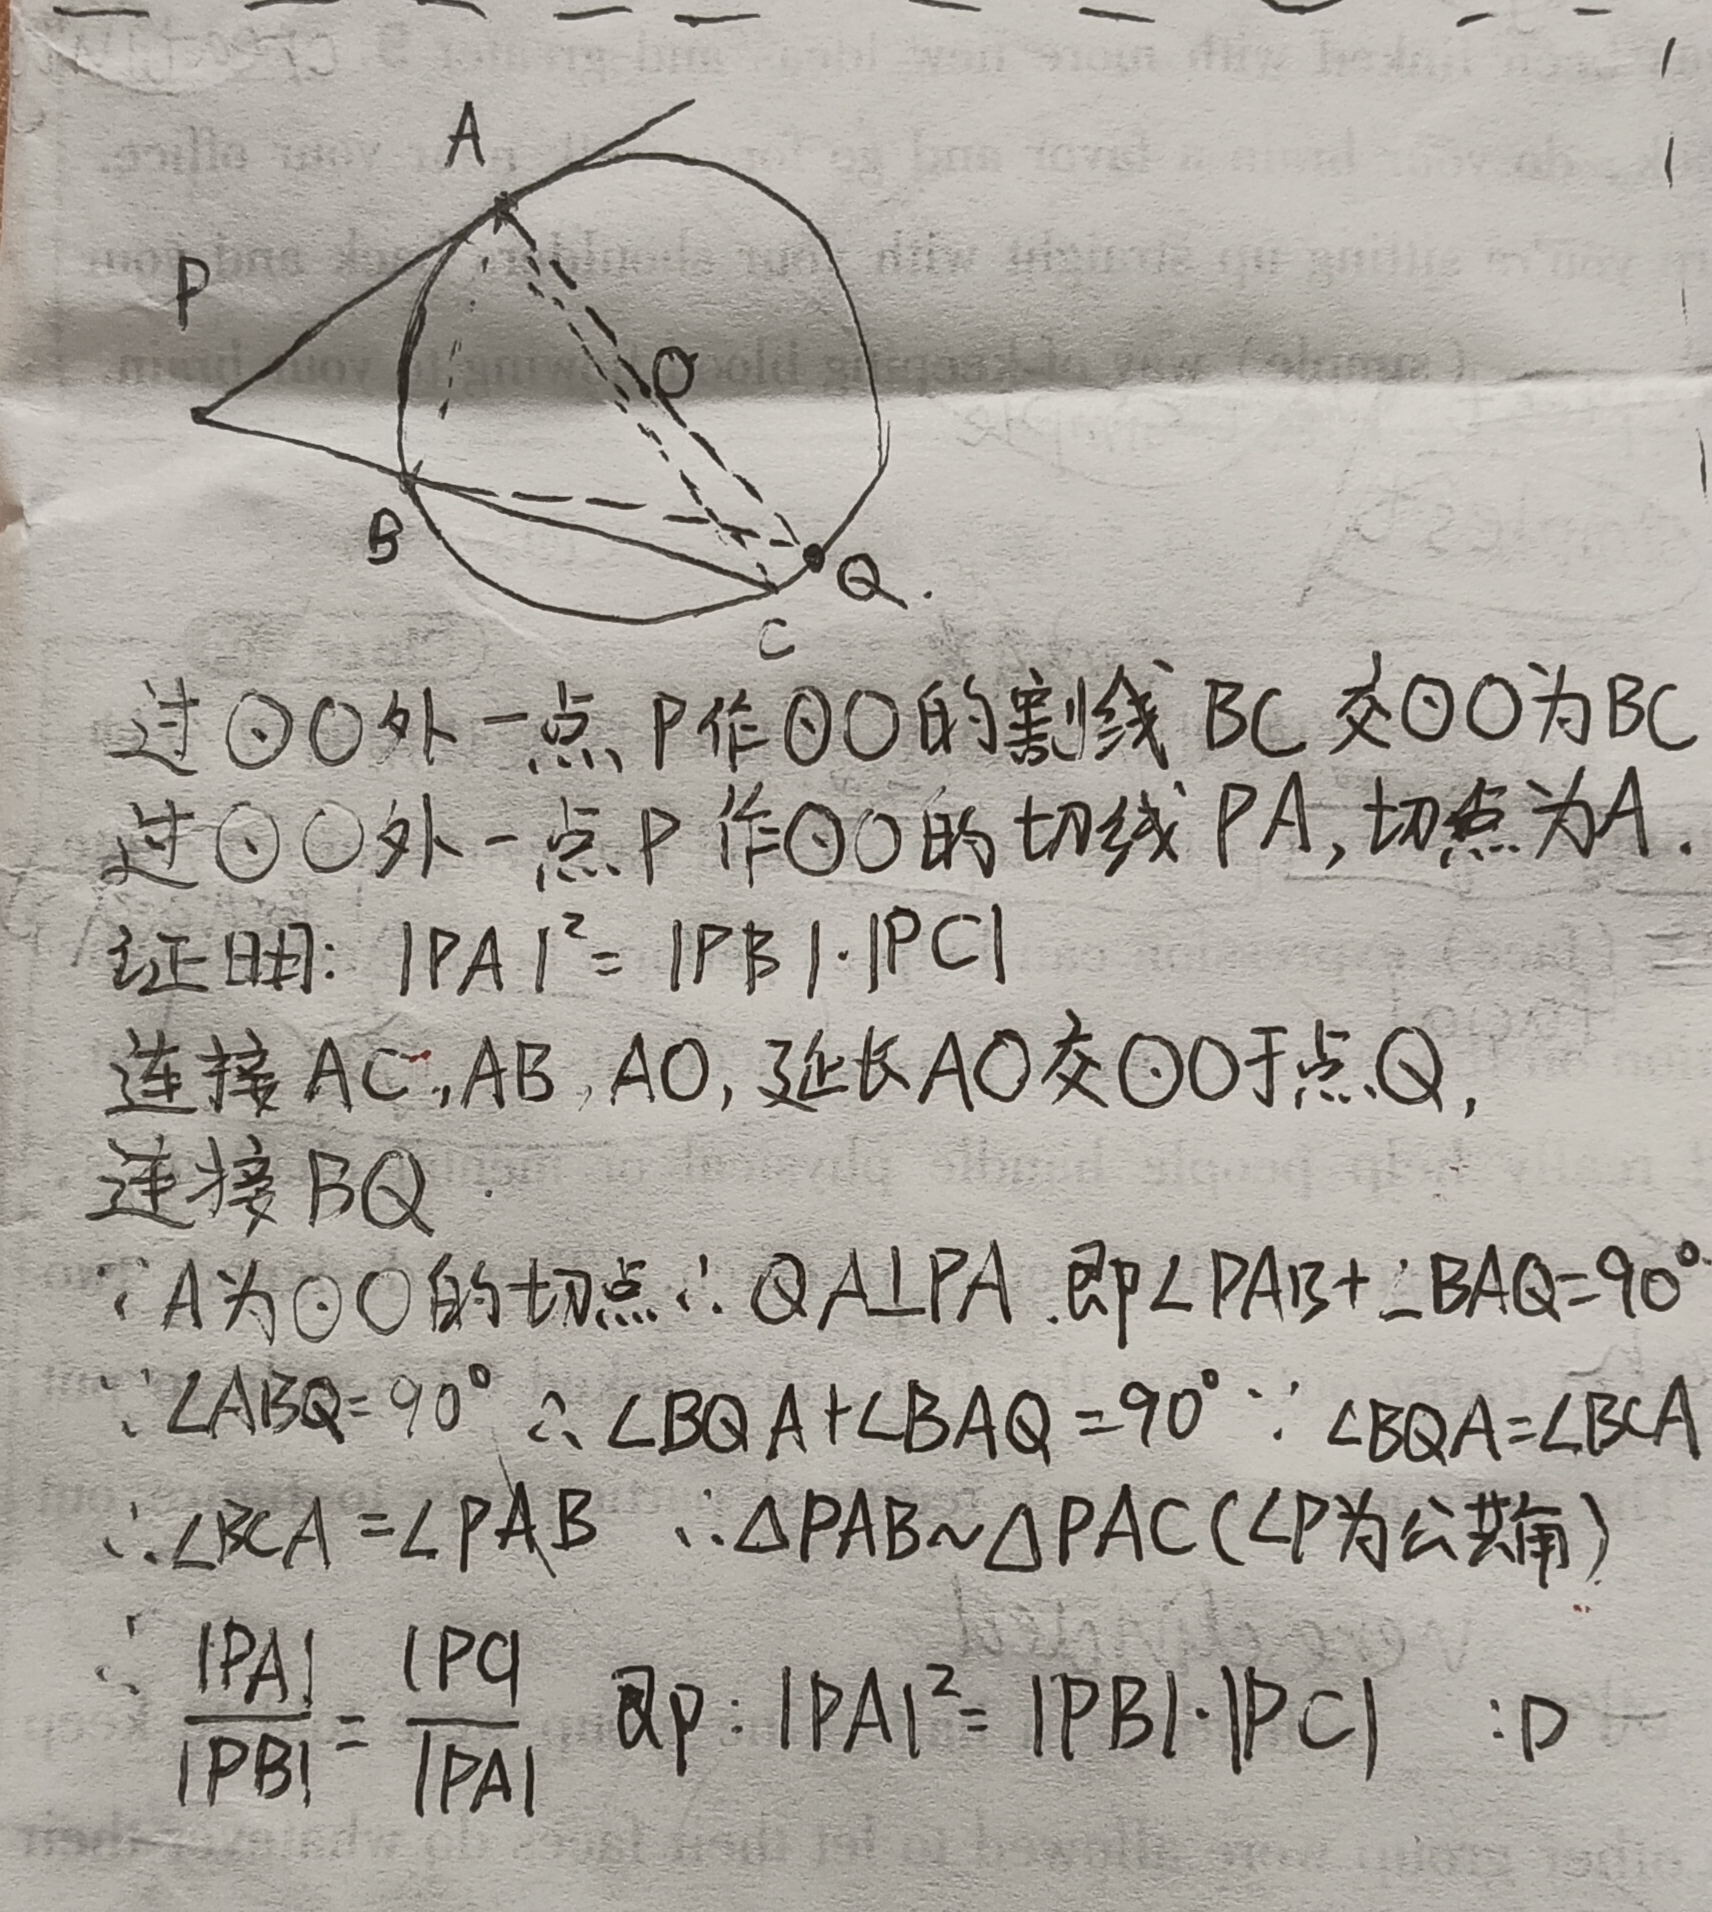 A
P
O
B
Q.
C
过⊙O外一点P作⊙O的割线BC交⊙O为BC
过⊙O外一点P作⊙O的切线PA,切点为A.
证明: |PA|²=|PB|·|PC|
连接AC,AB,AO,延长AO交⊙O于点Q,
连接BQ
∵A为⊙O的切点∴QA⊥PA.即∠PAB+∠BAQ=90°
∵∠ABQ=90°∴∠BQA+∠BAQ=90°∵∠BQA=∠BCA
∴∠BCA=∠PAB ∴△PAB~△PAC(∠P为公共角)
∴|PA|/|PB|=|PC|/|PA| 即:|PA|²=|PB|·|PC| :D